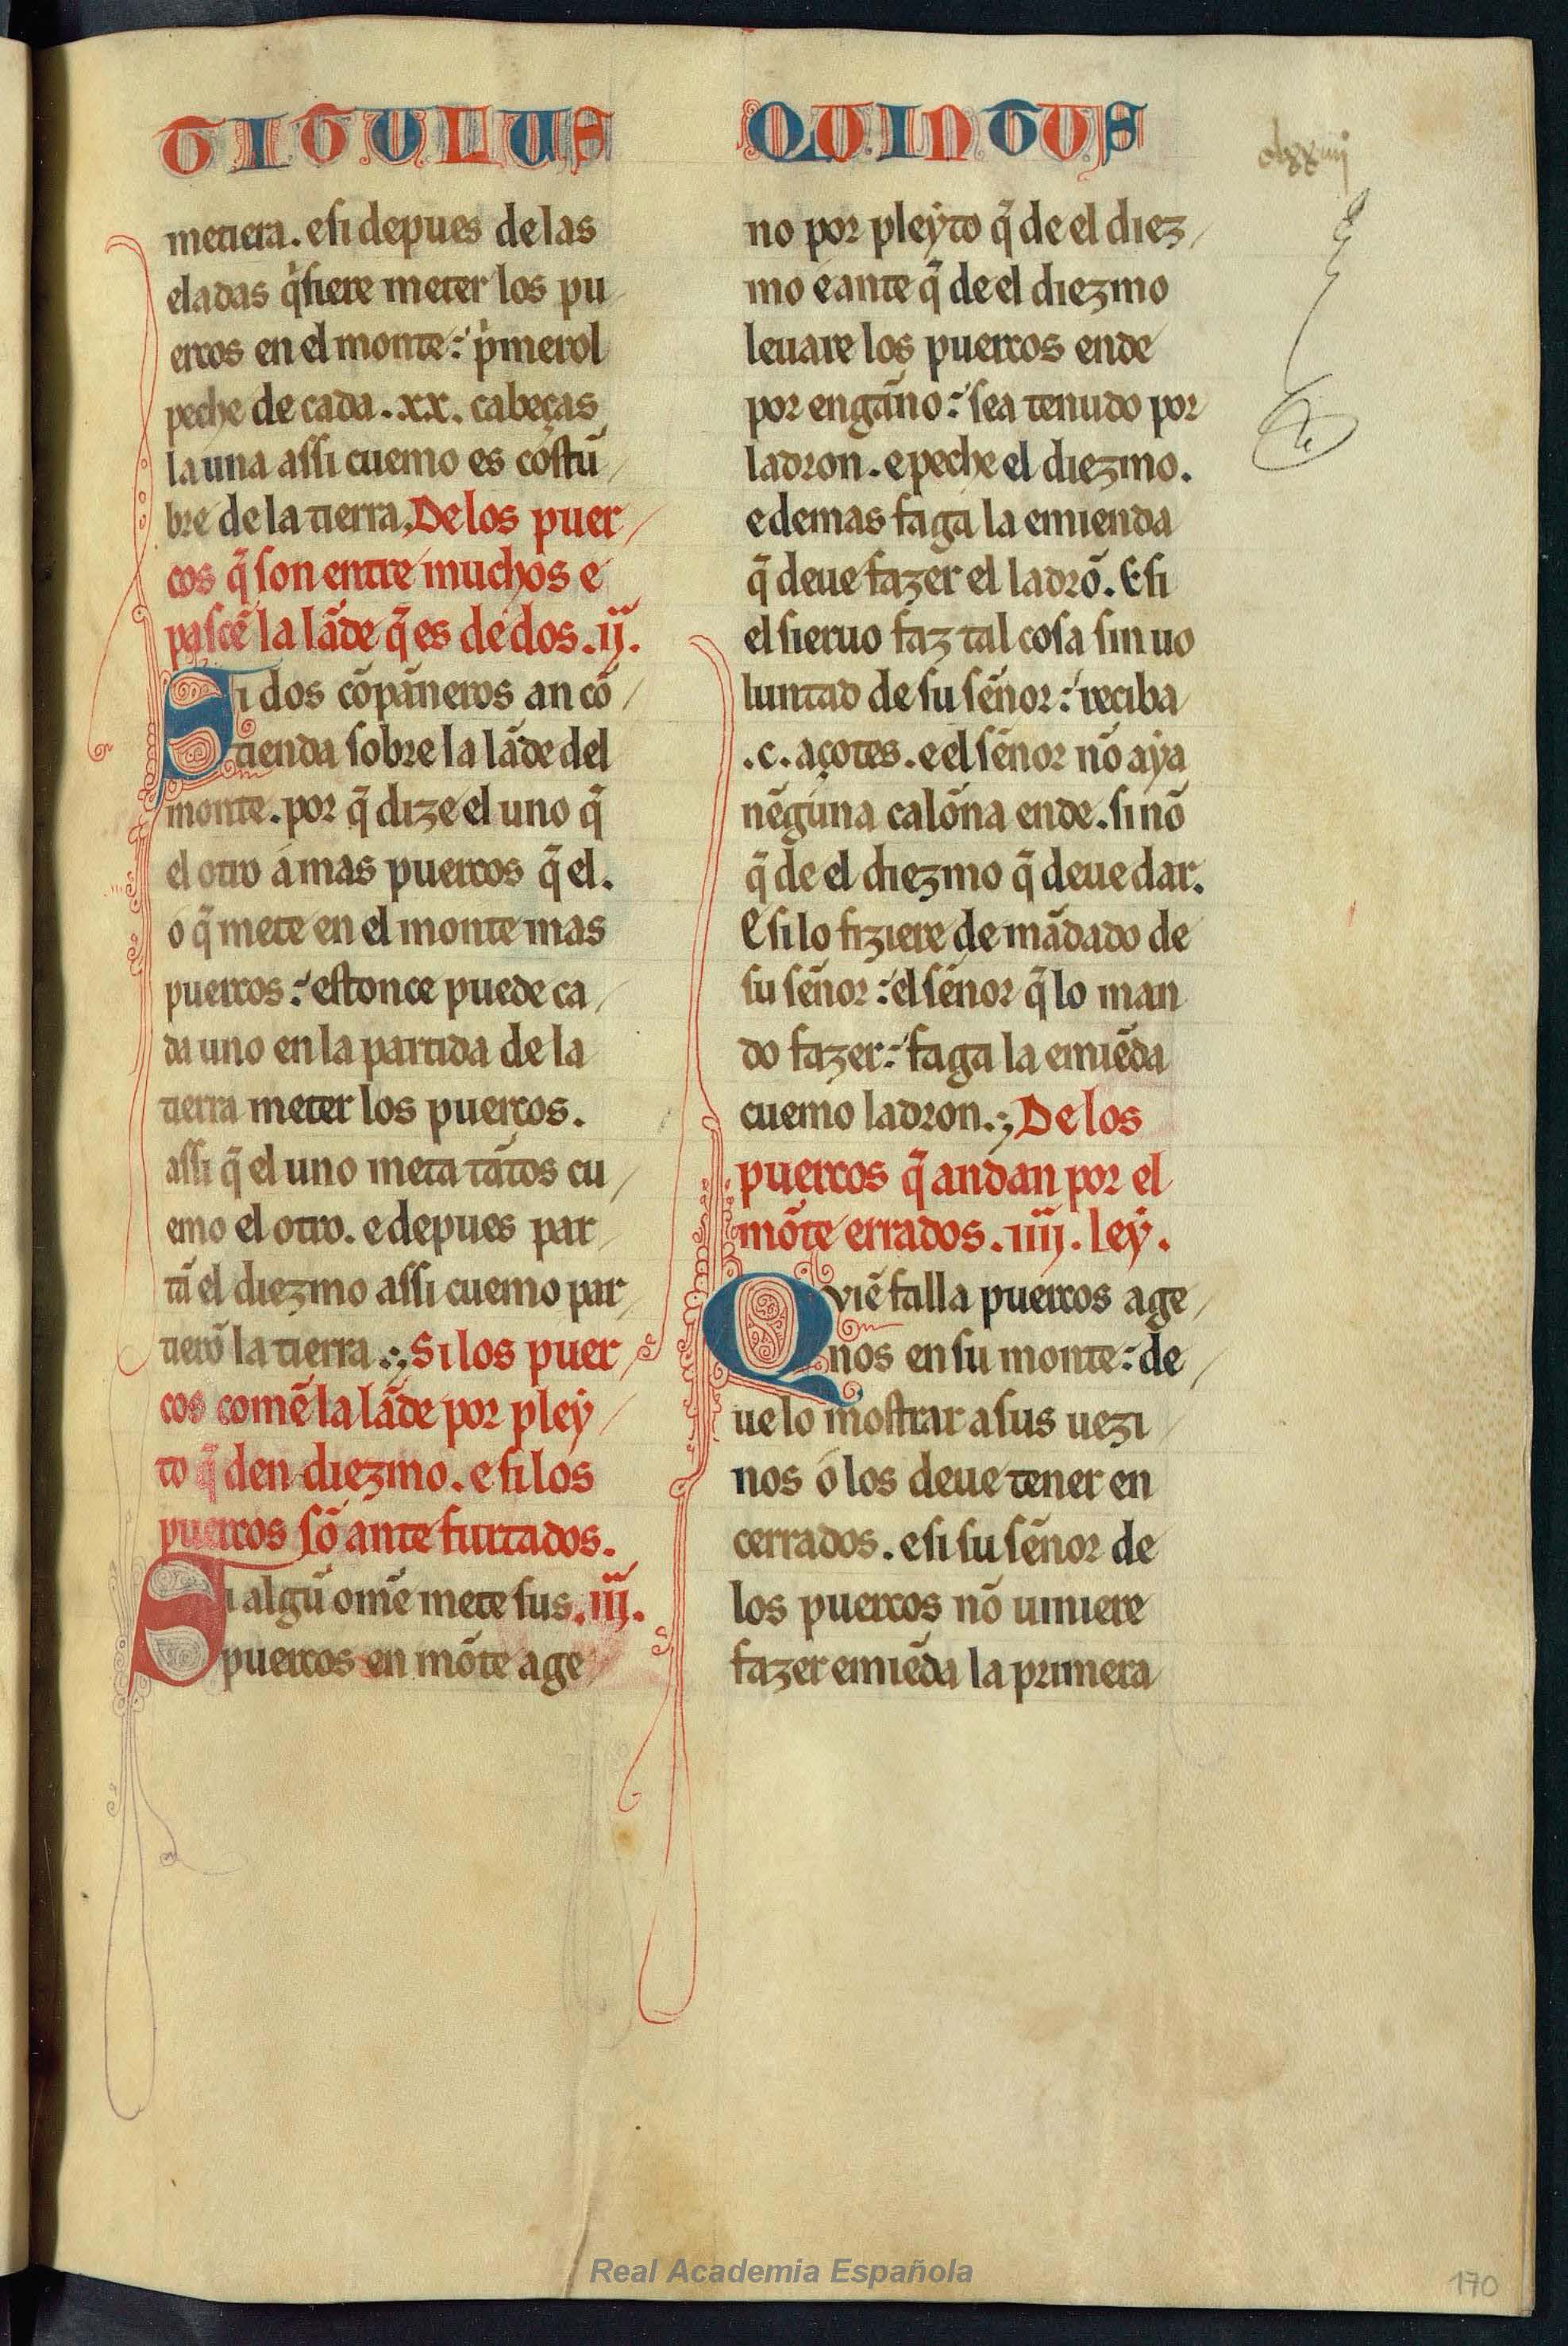 TITULUS
metiera. e si depues de las
eladas q̃siere meter los pu
ercos en el monte: p̃merol
peche de cada .xx. cabeças
la una assi cuemo es cõstũ
bre de la tierra. De los puer
cos q̃ son entre muchos e
pascẽ la lãde q̃ es de dos .ij.
Si dos cõpãneros an cõ
tienda sobre la lãde del
monte. por q̃ dize el uno q̃
el otro á mas puercos q̃ el.
o q̃ mete en el monte mas
puercos: estonce puede ca
da uno en la partida de la
tierra meter los puercos.
assi q̃ el uno meta tãtos cu
emo el otro. e depues par
tã el diezmo assi cuemo par
tierõ la tierra. Si los puer
cos comẽ la lãde por pley
to q̃ den diezmo. e si los
puercos sõ ante furtados.
Si algũ omẽ mete sus .iij.
puercos en mõte age
QUINTUS
no por pleyto q̃ de el diez
mo é ante q̃ de el diezmo
leuare los puercos ende
por engãno: sea tenudo por
ladron. e peche el diezmo.
e demas faga la emienda
q̃ deue fazer el ladrõ. E si
el sieruo faz tal cosa sin uo
luntad de su sẽnor: reciba
.c. açotes. e el sẽnor nõ aya
nẽguna calõna ende. si nõ
q̃ de el diezmo q̃ deue dar.
E si lo fiziere de mãdado de
su sẽnor: el sẽnor q̃ lo man
do fazer: faga la emiẽda
cuemo ladron. De los
puercos q̃ andan por el
mõte errados .iiij. ley.
Quiẽ falla puercos age
nos en su monte: de
ue lo mostrar a sus uezi
nos ó los deue tener en
cerrados. e si su sẽnor de
los puercos nõ uiniere
fazer emiẽda la primera
Real Academia Española
170